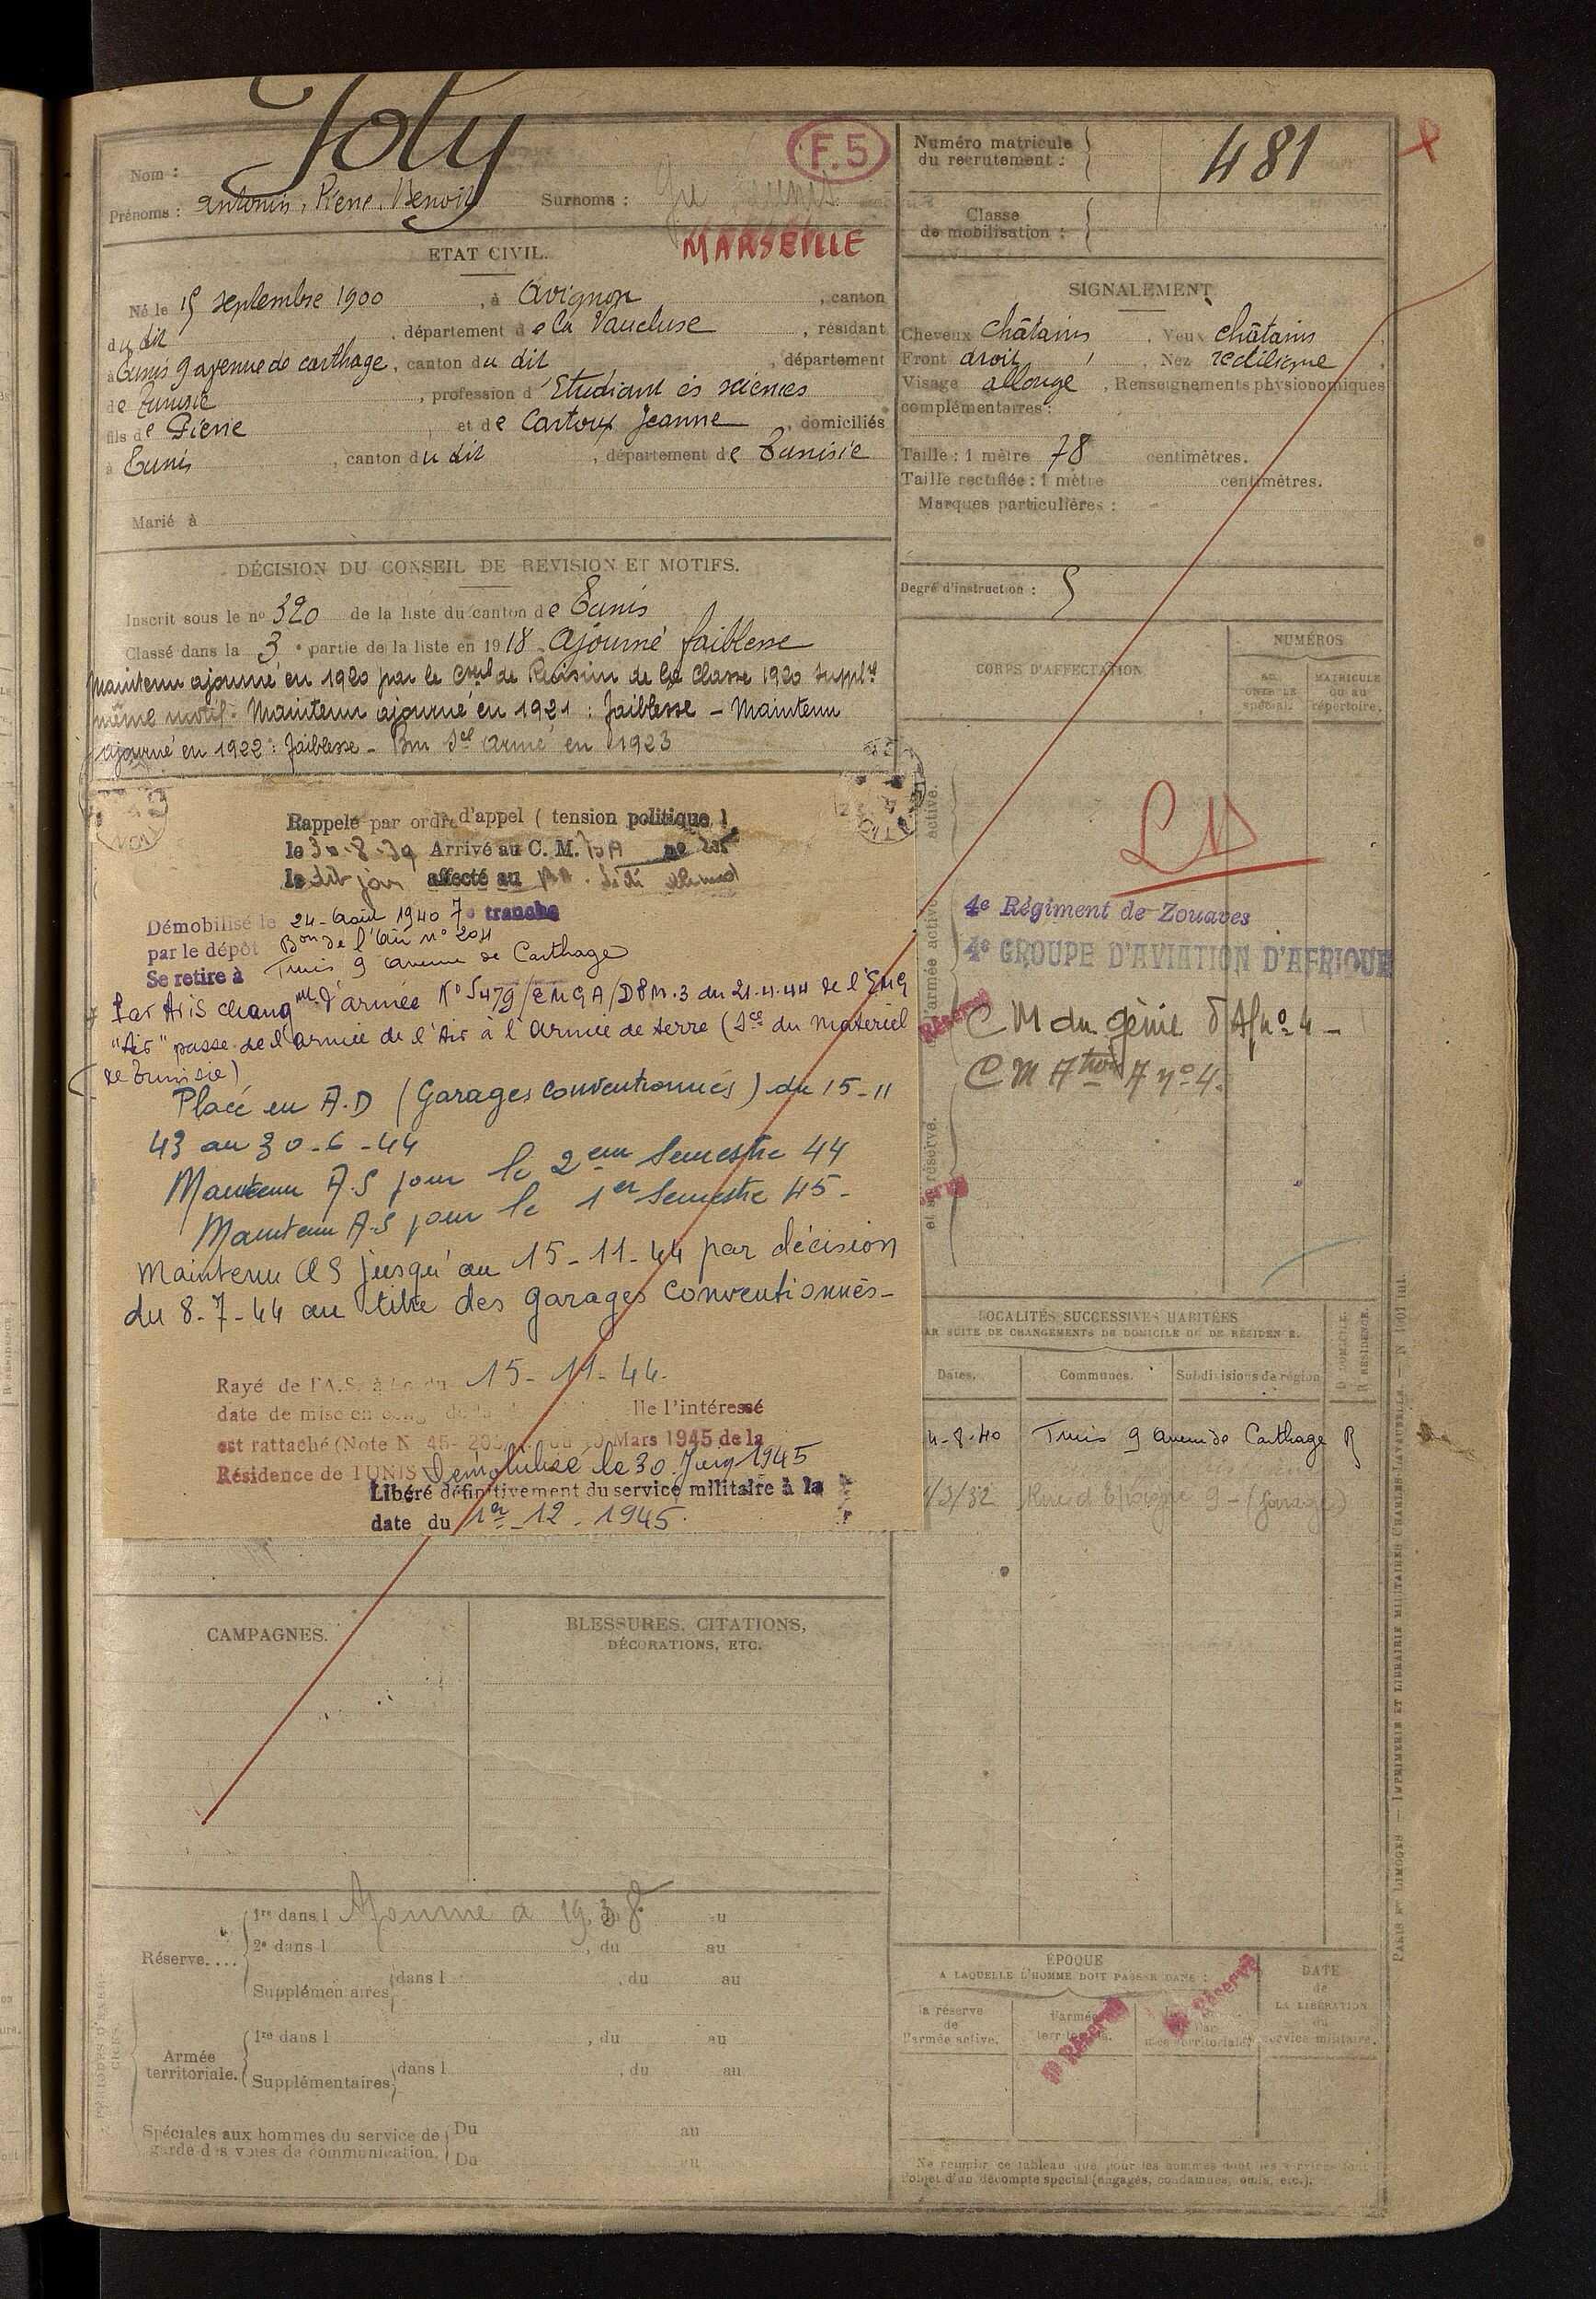 Nom : Joly
F.5
Prénoms : Antonin, René, Benoit Surnoms :
MARSEILLE
ETAT CIVIL.
Né le 15 septembre 1900, à Avignon, canton
du dit, département de la Vaucluse, résidant
à Tunis 9 avenue de carthage, canton du dit, département
de Tunisie, profession d'Etudiant ès sciences
fils de Pierre et de Cartoux Jeanne, domiciliés
à Tunis, canton du dit, département de Tunisie
Marié à
DÉCISION DU CONSEIL DE REVISION ET MOTIFS.
Inscrit sous le nº 320 de la liste du canton de Tunis
Classé dans la 3e partie de la liste en 1918 Ajourné faiblesse
Maintenu ajourné en 1920 par le Cseil de Révision de la Classe 1920
même motif. Maintenu ajourné en 1921 : faiblesse - Maintenu
ajourné en 1922 : faiblesse - Bon Sce armé en 1923
Rappelé par ordre d'appel ( tension politique )
le 30-8-39 Arrivé au C. M.
le dit jour affecté au
Démobilisé le 24-Août 1940 7e tranche
par le dépôt Bon de l'air nº 204
Se retire à Tunis 9 avenue de Carthage
Par Avis changmt d'armée Nº 5479/EMGA/DPM.3 du 21.4.44 de l'EMG
"Air" passe de l'armée de l'Air à l'armée de terre (Sce du Matériel
de Tunisie)
Placé en A.D (Garages conventionnés) du 15-11
43 au 30-6-44
Maintenu A.S pour le 2em Semestre 44
Maintenu A-S pour le 1er Semestre 45-
Maintenu AS jusqu'au 15-11-44 par décision
du 8-7-44 au titre des garages conventionnés-
Rayé de l'A.S. 15-11-44.
date de mise en lle l'intéressé
est rattaché (Note N 45- Mars 1945 de la
Résidence de TUNIS Démobilisé le 30 Juin 1945
Libéré définitivement du service militaire à la
date du 1er-12-1945.
CAMPAGNES.
BLESSURES, CITATIONS,
DÉCORATIONS, ETC.
Réserve....
1re dans l Ajourné à 1938
2e dans l , du au
Supplémentaires dans l , du au
Armée
territoriale.
1re dans l , du au
Supplémentaires dans l , du au
Spéciales aux hommes du service de
garde des voies de communication.
Du au
Du au
Numéro matricule
du recrutement :
481
Classe
de mobilisation :
SIGNALEMENT
Cheveux châtains. Yeux châtains
Front droit, Nez rectiligne
Visage allongé, Renseignements physionomiques
complémentaires :
Taille : 1 mètre 78 centimètres.
Taille rectifiée : 1 mètre centimètres.
Marques particulières :
Degré d'instruction : 5
CORPS D'AFFECTATION
NUMÉROS
AU CONTRÔLE spécial.
MATRICULE ou au répertoire.
4e Régiment de Zouaves
4e GROUPE D'AVIATION D'AFRIQUE
Réserve
C M du génie d'Af nº 4 -
LOCALITÉS SUCCESSIVES HABITÉES
PAR SUITE DE CHANGEMENTS DE DOMICILE OU DE RÉSIDENCE.
Dates. Communes. Subdivisions de région
D. DOMICILE.
R. RÉSIDENCE.
4-8-40 Tunis 9 avenue de Carthage R
1/3/32 (garage)
ÉPOQUE
A LAQUELLE L'HOMME DOIT PASSER DANS :
la réserve
de
l'armée active.
l'armée
territoriale.
DATE
de
LA LIBÉRATION
du
service militaire.
Réserve
Réserve
Ne remplir ce tableau que pour les hommes dont les services font
l'objet d'un décompte spécial (engagés, condamnés, omis, etc.).
PARIS ET LIMOGES — IMPRIMERIE ET LIBRAIRIE MILITAIRES CHARLES-LAVAUZELLE.